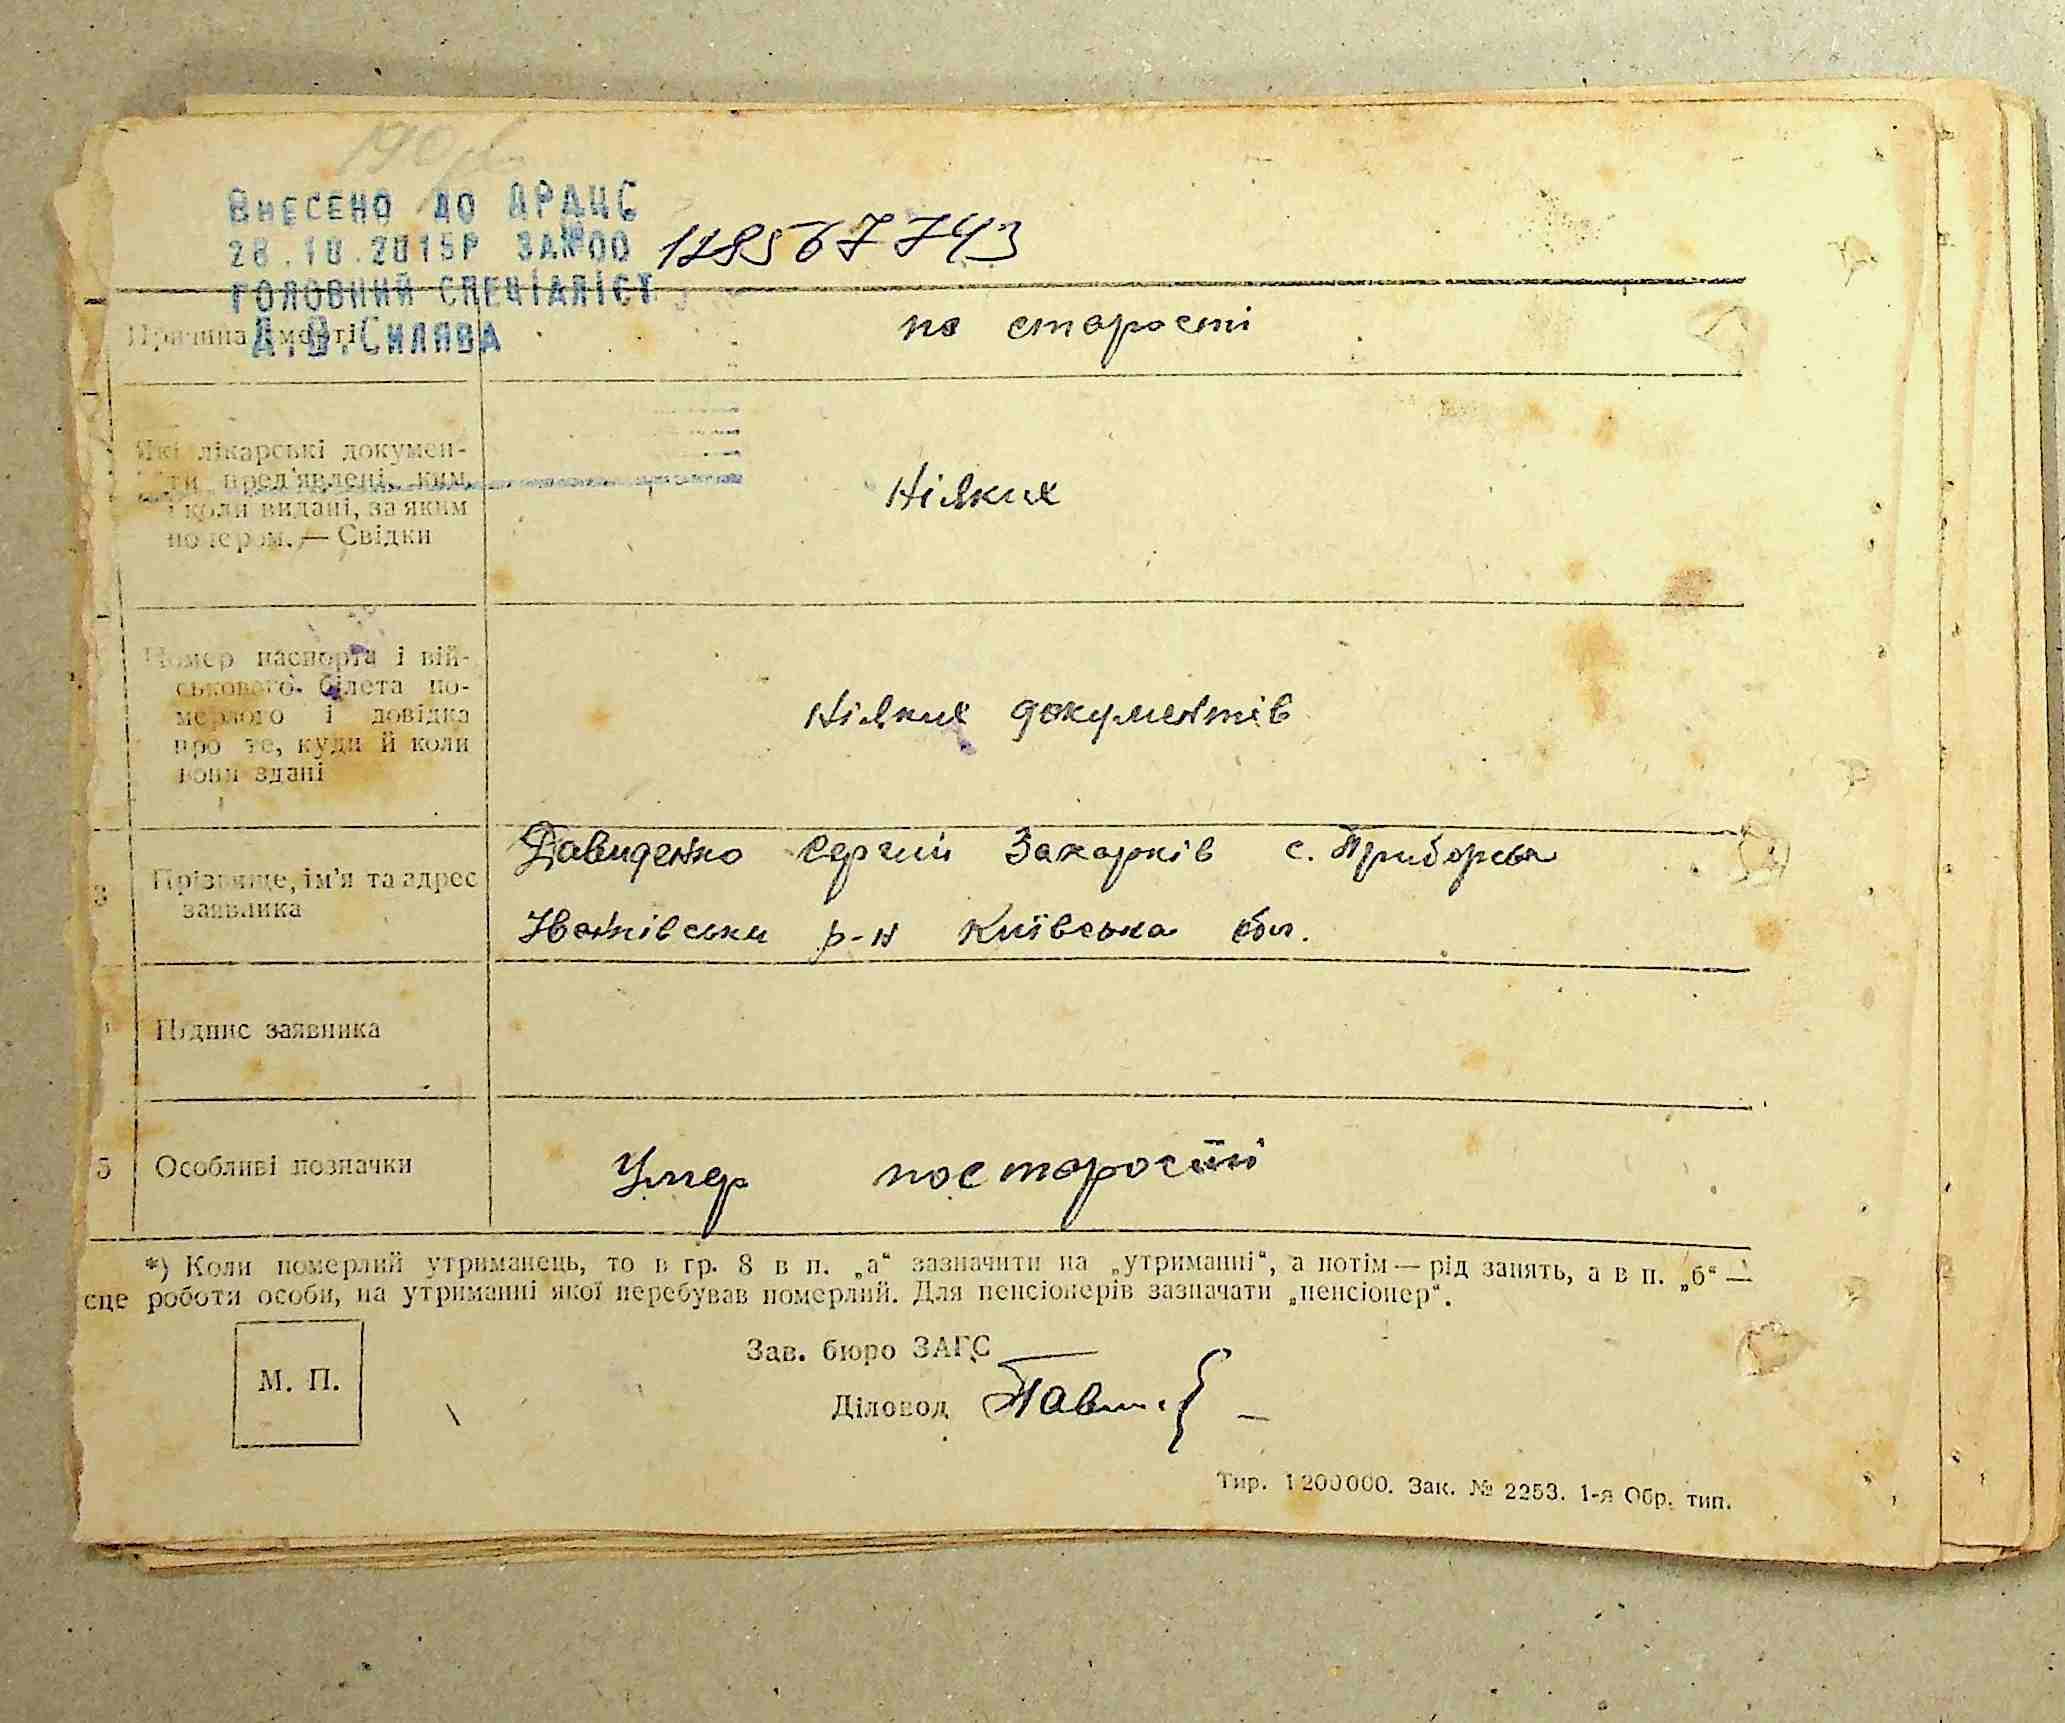 ВНЕСЕНО ДО ДРАЦС
28.10.2015Р ЗА №00 128567743
ГОЛОВНИЙ СПЕЦІАЛІСТ
Д.В.СИЛЯВА
Причина смерті
по старості
Які лікарські докумен-
ти пред'явлені, ким
і коли видані, за яким
номером. — Свідки
Ніяких
Номер паспорта і вій-
ськового білета по-
мерлого і довідка
про те, куди й коли
вони здані
Ніяких документів
3 Прізвище, ім'я та адрес
заявлика
Давиденко Сергий Захарків с. Приборськ
Іванківськи р-н Київська обл.
Підпис заявника
5 Особливі позначки
Умер постарості
*) Коли померлий утриманець, то в гр. 8 в п. „а“ зазначити на „утриманні“, а потім — рід занять, а в п. „б“ —
сце роботи особи, на утриманні якої перебував померлий. Для пенсіонерів зазначати „пенсіонер“.
М. П.
Зав. бюро ЗАГС
Діловод
Тир. 1 200 000. Зак. № 2253. 1-я Обр. тип.